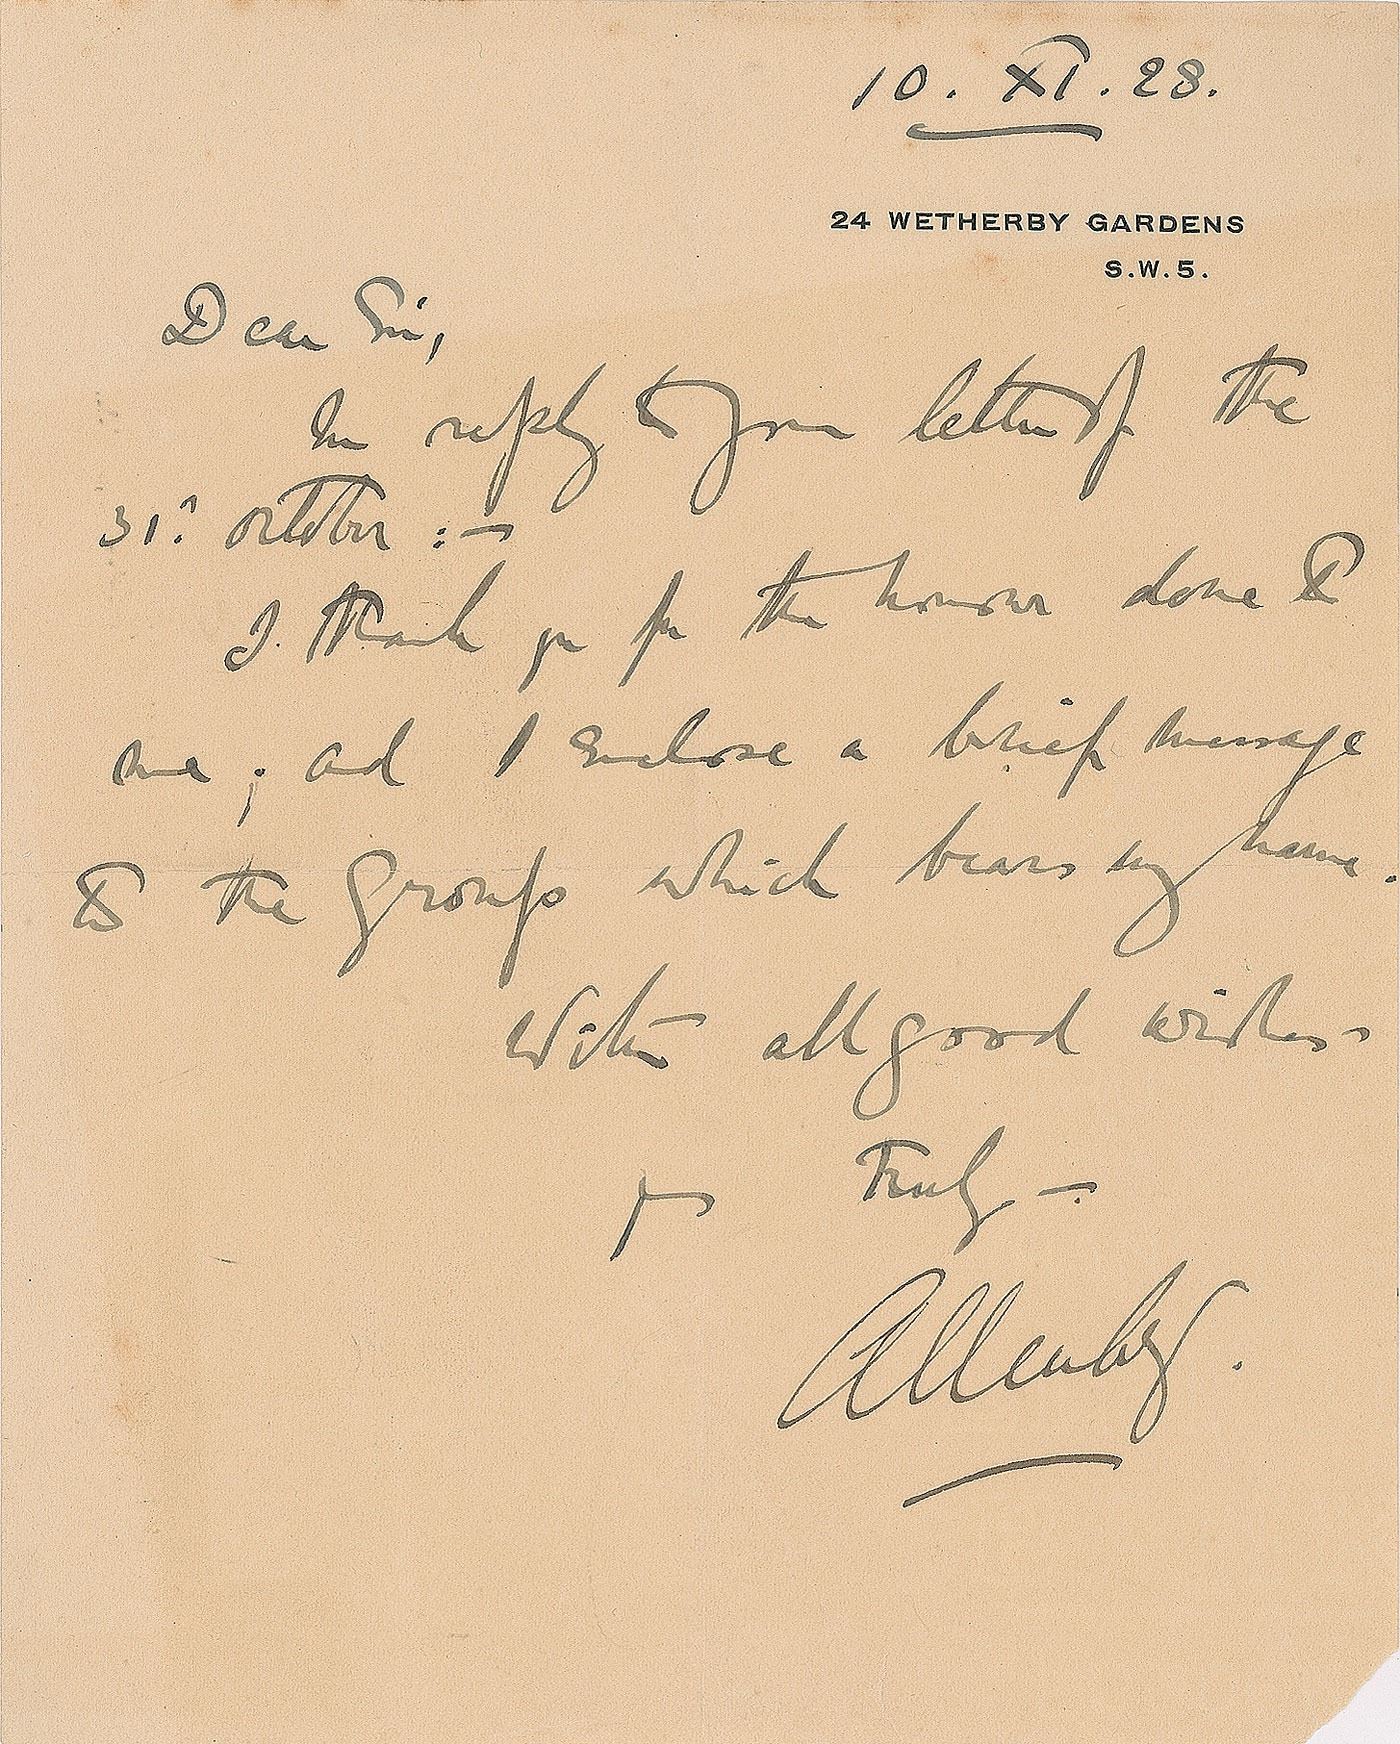 10. XI. 28.
24 WETHERBY GARDENS
S.W.5.
Dear Sir,
In reply to your letter of the
31st October :—
I thank you for the honour done to
me ; and I enclose a brief message
to the Group which bears my name.
With all good wishes
Yrs Truly —
Allenby.